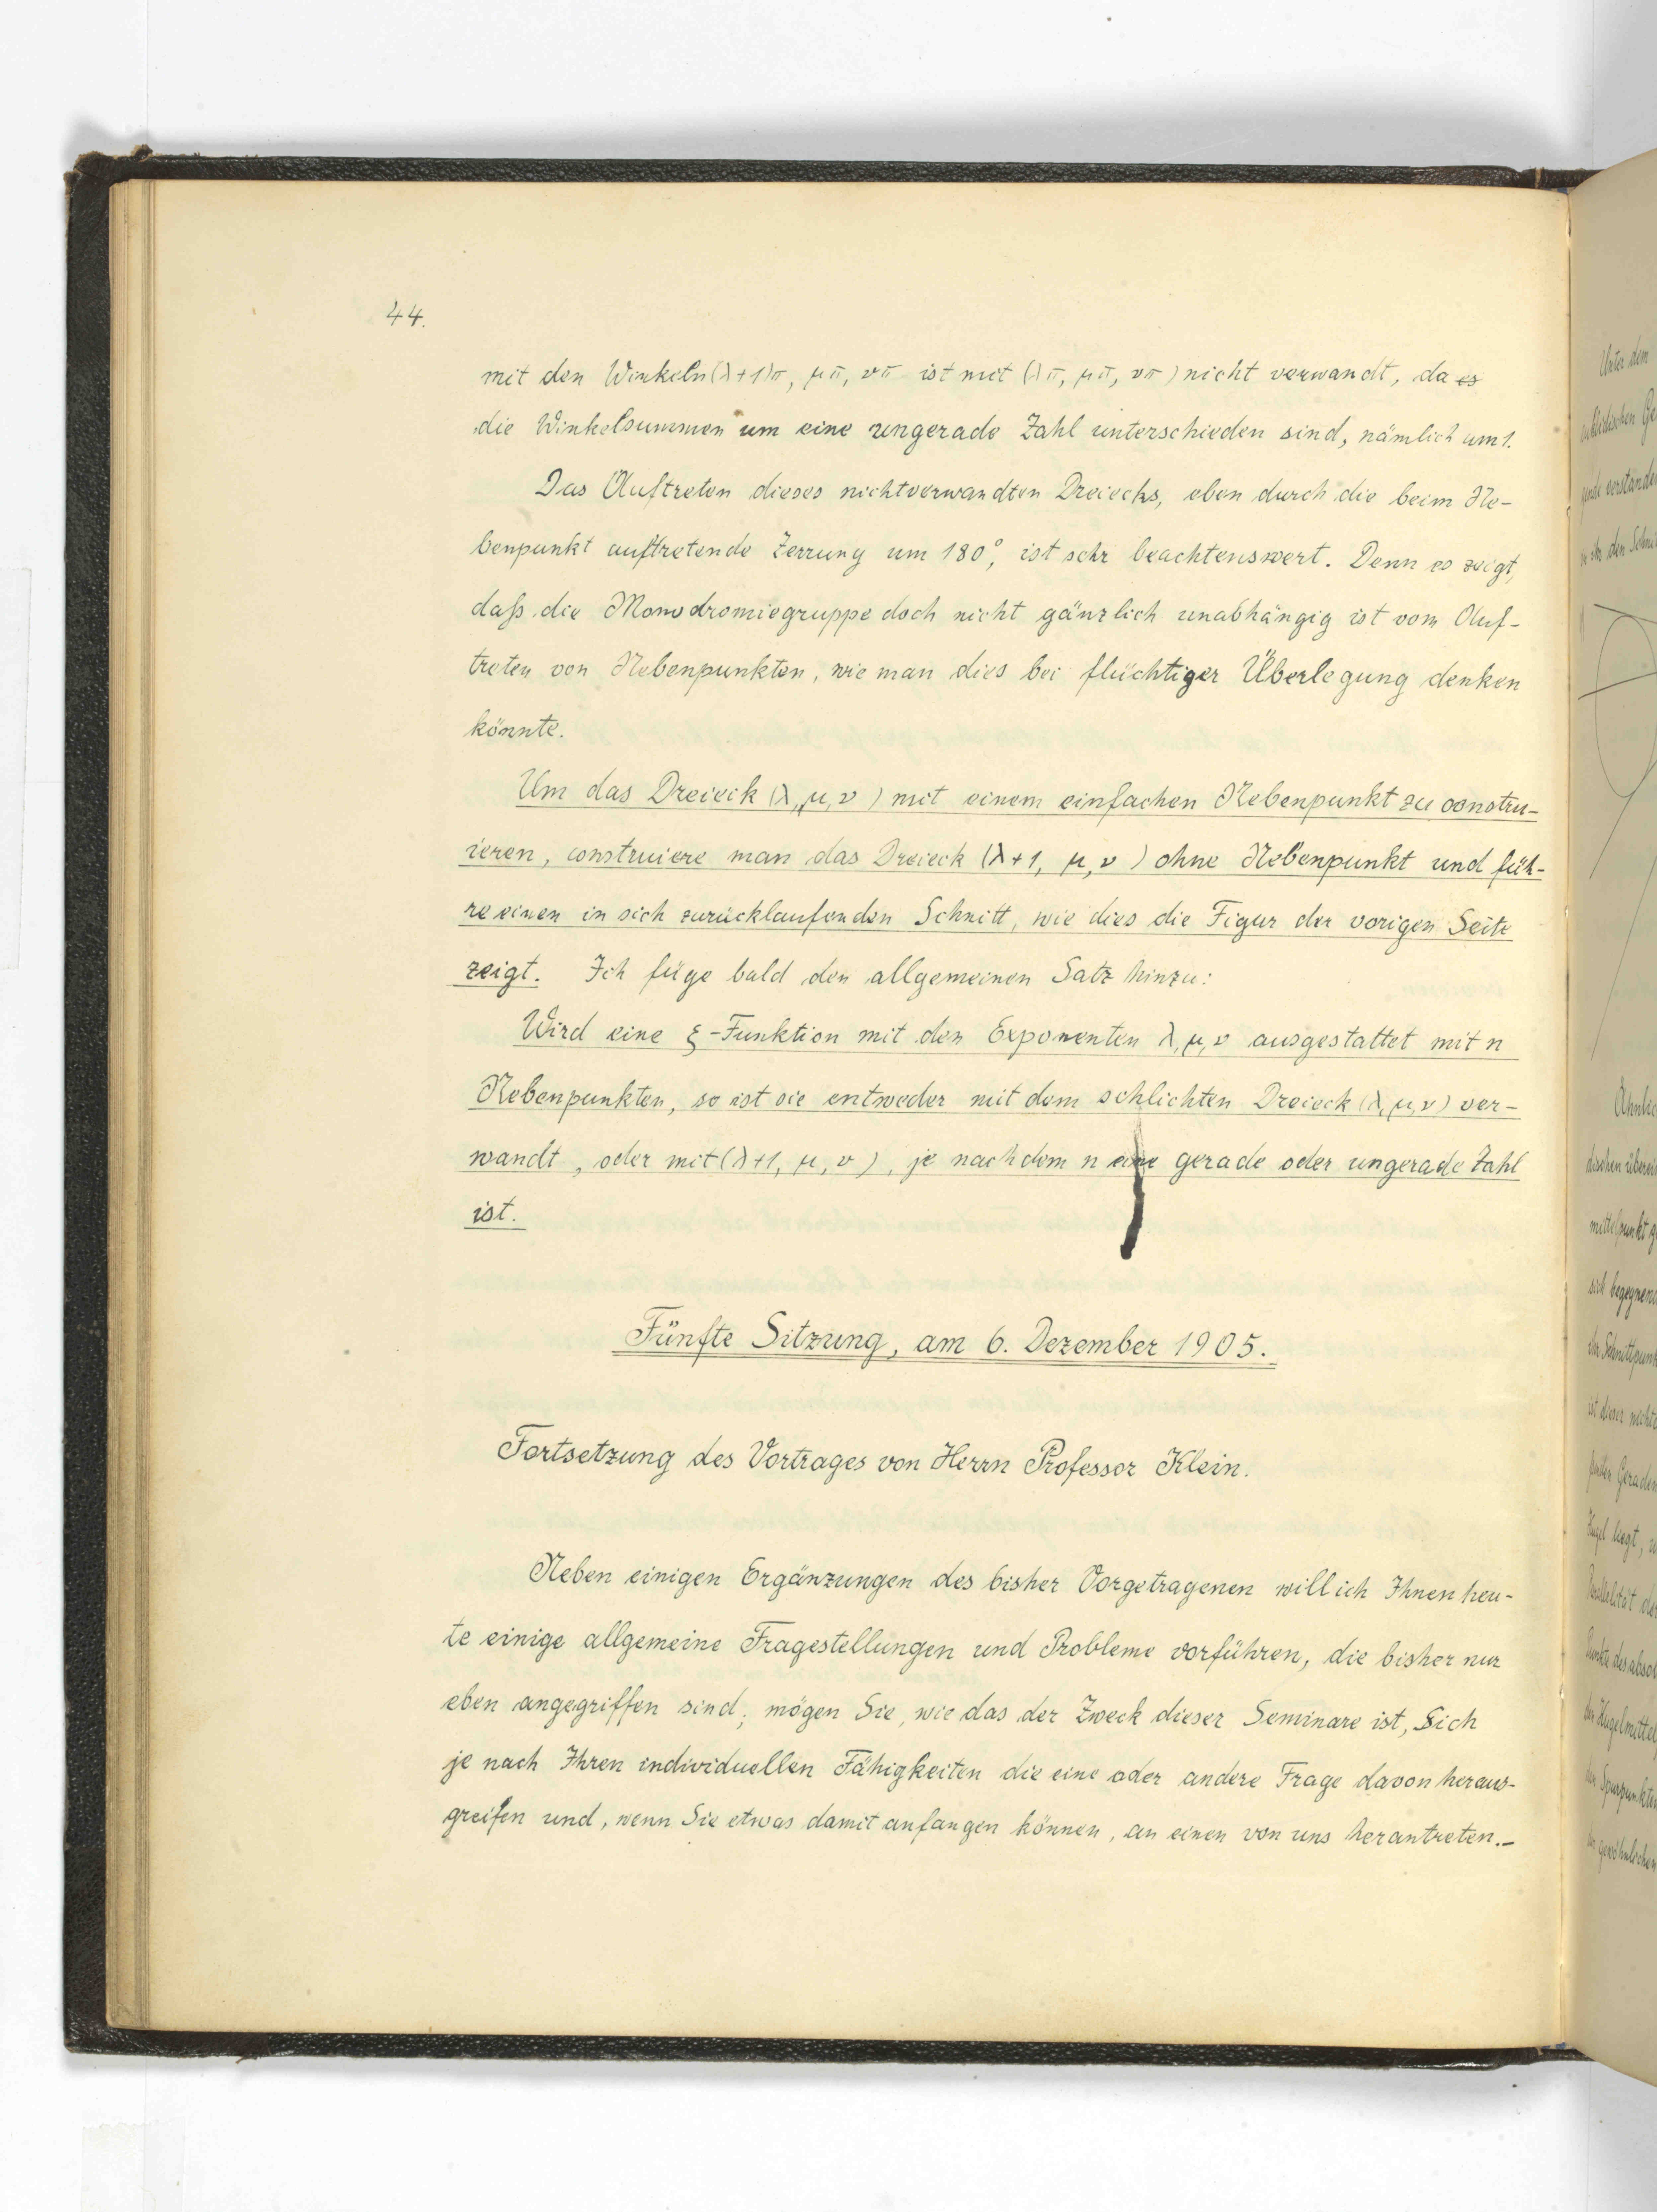 44.
mit den Winkeln (λ+1)π, μπ, νπ ist mit (λπ, μπ, νπ) nicht verwandt, da es
die Winkelsummen um eine ungerade Zahl unterschieden sind, nämlich um 1.
Das Auftreten dieses nichtverwandten Dreiecks, eben durch die beim Ne-
benpunkt auftretende Zerrung um 180°, ist sehr beachtenswert. Denn es zeigt,
daß die Monodromiegruppe doch nicht gänzlich unabhängig ist vom Auf-
treten von Nebenpunkten, wie man dies bei flüchtiger Überlegung denken
könnte.
Um das Dreieck (λ, μ, ν) mit einem einfachen Nebenpunkt zu constru-
ieren, construiere man das Dreieck (λ+1, μ, ν) ohne Nebenpunkt und füh-
re einen in sich zurücklaufenden Schnitt, wie dies die Figur der vorigen Seite
zeigt. Ich füge bald den allgemeinen Satz hinzu:
Wird eine ξ-Funktion mit den Exponenten λ, μ, ν ausgestattet mit n
Nebenpunkten, so ist sie entweder mit dem schlichten Dreieck (λ, μ, ν) ver-
wandt, oder mit (λ+1, μ, ν), je nachdem n eine gerade oder ungerade Zahl
ist.
Fünfte Sitzung, am 6. Dezember 1905.
Fortsetzung des Vortrages von Herrn Professor Klein.
Neben einigen Ergänzungen des bisher Vorgetragenen will ich Ihnen heu-
te einige allgemeine Fragestellungen und Probleme vorführen, die bisher nur
eben angegriffen sind; mögen Sie, wie das der Zweck dieser Seminare ist, Sich
je nach Ihren individuellen Fähigkeiten die eine oder andere Frage davon heraus-
greifen und, wenn Sie etwas damit anfangen können, an einen von uns herantreten.–
Unter dem